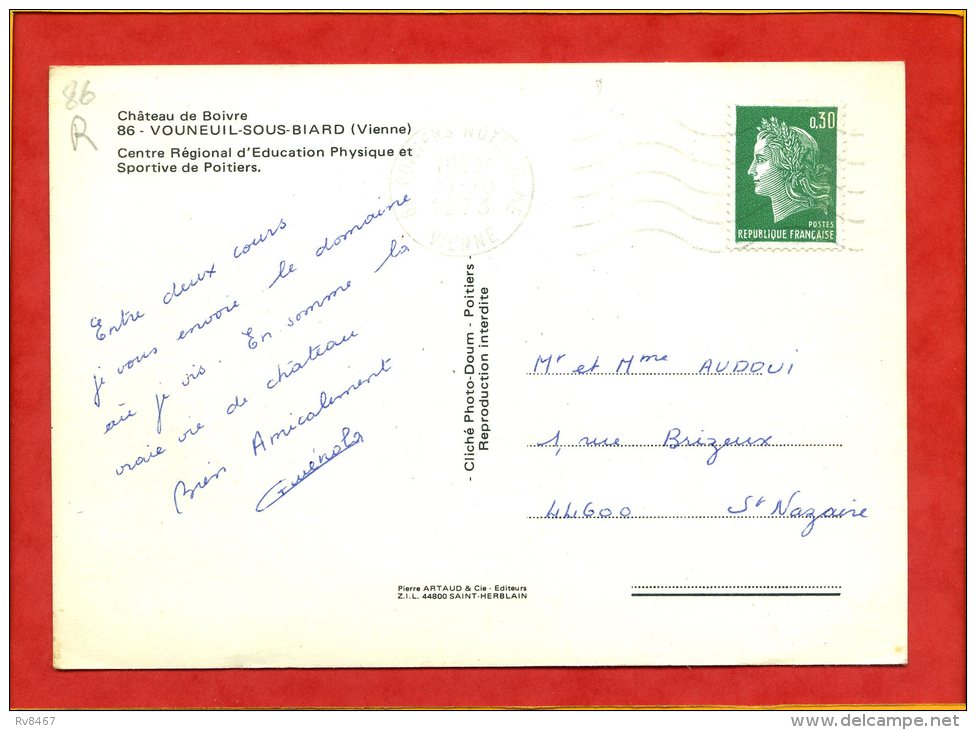 86
R
Château de Boivre
86 - VOUNEUIL-SOUS-BIARD (Vienne)
Centre Régional d'Education Physique et
Sportive de Poitiers.
Entre deux cours
je vous envoie le domaine
où je vis. En somme la
vraie vie de château
Bien Amicalement
Guénola
- Cliché Photo-Doum - Poitiers -
Reproduction interdite
Pierre ARTAUD & Cie - Editeurs
Z.I.L. 44800 SAINT-HERBLAIN
VIENNE
0,30
POSTES
REPUBLIQUE FRANÇAISE
Mr et Mme AUDOUI
1, rue Brizeux
44600 St Nazaire
Rv8467
www.delcampe.net